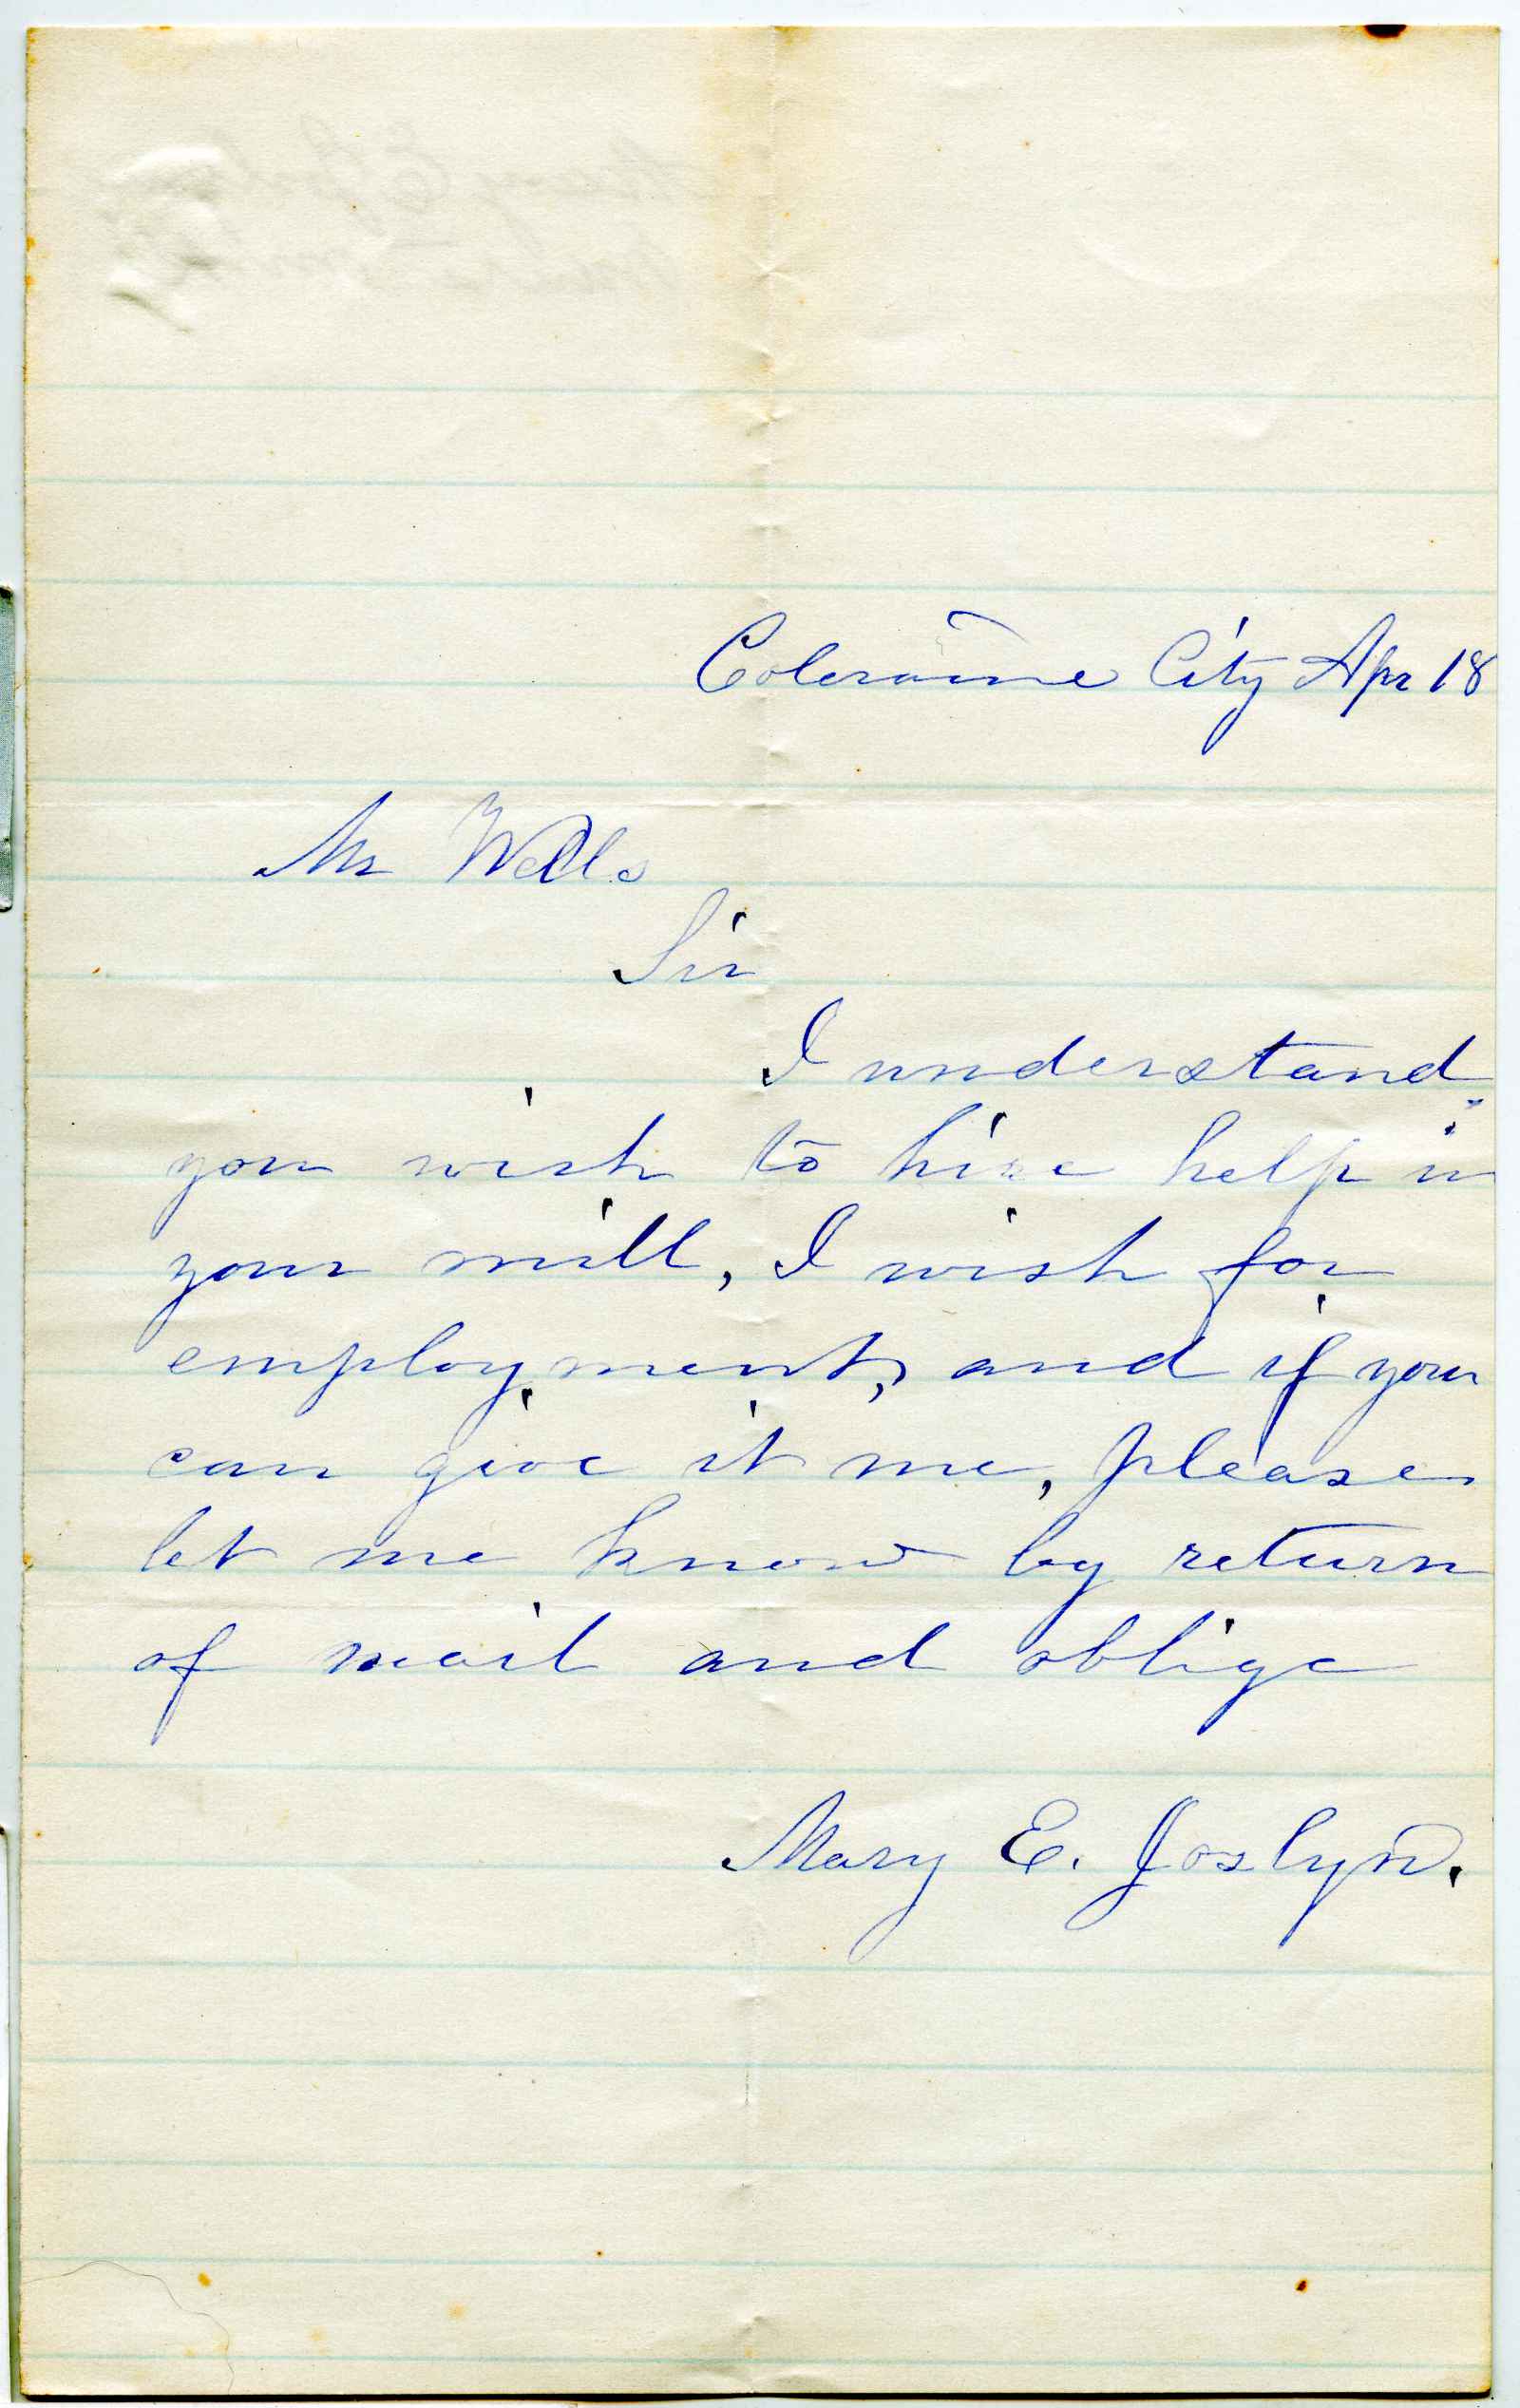 Coleraine City Apr 18
Mr Wells
Sir
I understand
you wish to hire help in
your mill, I wish for
employment, and if you
can give it me, please
let me know by return
of mail and oblige
Mary E. Joslyn.